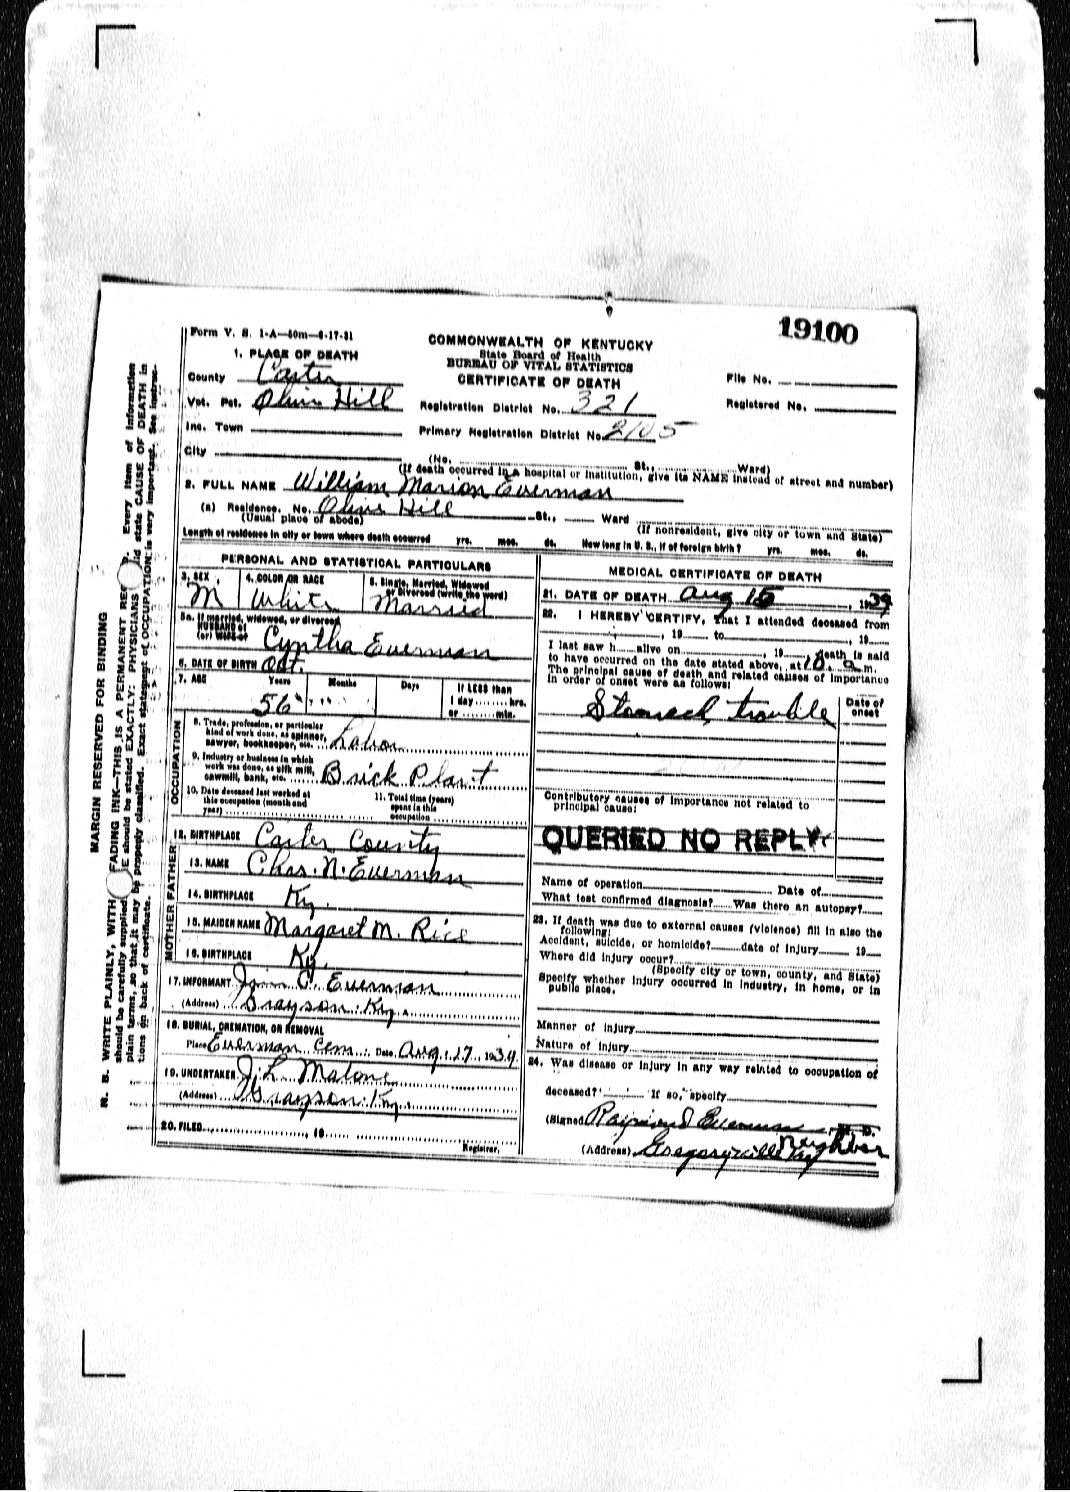 19100
Form V. S. 1-A—50m—6-17-31
COMMONWEALTH OF KENTUCKY
State Board of Health
BUREAU OF VITAL STATISTICS
CERTIFICATE OF DEATH
1. PLACE OF DEATH
County Carter
Vot. Pct. Olive Hill
Inc. Town
City
File No.
Registered No.
Registration District No. 321
Primary Registration District No. 2105
(No. St., Ward)
(If death occurred in a hospital or institution, give its NAME instead of street and number)
2. FULL NAME William Marion Everman
(a) Residence. No. Olive Hill St., Ward
(Usual place of abode) (If nonresident, give city or town and State)
Length of residence in city or town where death occurred yrs. mos. ds. How long in U. S., if of foreign birth? yrs. mos. ds.
PERSONAL AND STATISTICAL PARTICULARS
3. SEX M
4. COLOR OR RACE White
5. Single, Married, Widowed or Divorced (write the word) Married
5a. If married, widowed, or divorced
HUSBAND of
(or) WIFE of Cyntha Everman
6. DATE OF BIRTH Oct.
7. AGE Years Months Days If LESS than
1 day hrs.
or min.
56
OCCUPATION
8. Trade, profession, or particular
kind of work done, as spinner,
sawyer, bookkeeper, etc. Labor
9. Industry or business in which
work was done, as silk mill,
sawmill, bank, etc. Brick Plant
10. Date deceased last worked at
this occupation (month and
year)
11. Total time (years)
spent in this
occupation
12. BIRTHPLACE Carter County
FATHER
13. NAME Chas. N. Everman
14. BIRTHPLACE Ky.
MOTHER
15. MAIDEN NAME Margaret M. Rice
16. BIRTHPLACE Ky.
17. INFORMANT Jim C. Everman
(Address) Grayson Ky.
18. BURIAL, CREMATION, OR REMOVAL
Place Everman Cem. Date Aug. 17, 1939
19. UNDERTAKER J. L. Malone
(Address) Grayson Ky.
20. FILED 19
Registrar.
MEDICAL CERTIFICATE OF DEATH
21. DATE OF DEATH Aug 15, 1939
22. I HEREBY CERTIFY, That I attended deceased from
, 19 to , 19
I last saw h alive on , 19 , death is said
to have occurred on the date stated above, at 10. a m.
The principal cause of death and related causes of importance
in order of onset were as follows:
Date of
onset
Stomach trouble
Contributory causes of importance not related to
principal cause:
QUERIED NO REPLY
Name of operation Date of
What test confirmed diagnosis? Was there an autopsy?
23. If death was due to external causes (violence) fill in also the
following:
Accident, suicide, or homicide? date of injury 19
Where did injury occur?
(Specify city or town, county, and State)
Specify whether injury occurred in industry, in home, or in
public place.
Manner of injury
Nature of injury
24. Was disease or injury in any way related to occupation of
deceased? If so, specify
(Signed Raymond Everman M. D.
Neighbor
(Address) Gregoryville Ky
MARGIN RESERVED FOR BINDING
N. B. WRITE PLAINLY, WITH FADING INK—THIS IS A PERMANENT REC Every item of information
should be carefully supplied. should be stated EXACTLY. PHYSICIANS state CAUSE OF DEATH in
plain terms, so that it may be properly classified. Exact statement of OCCUPATION is very important. See instruc-
tions on back of certificate.